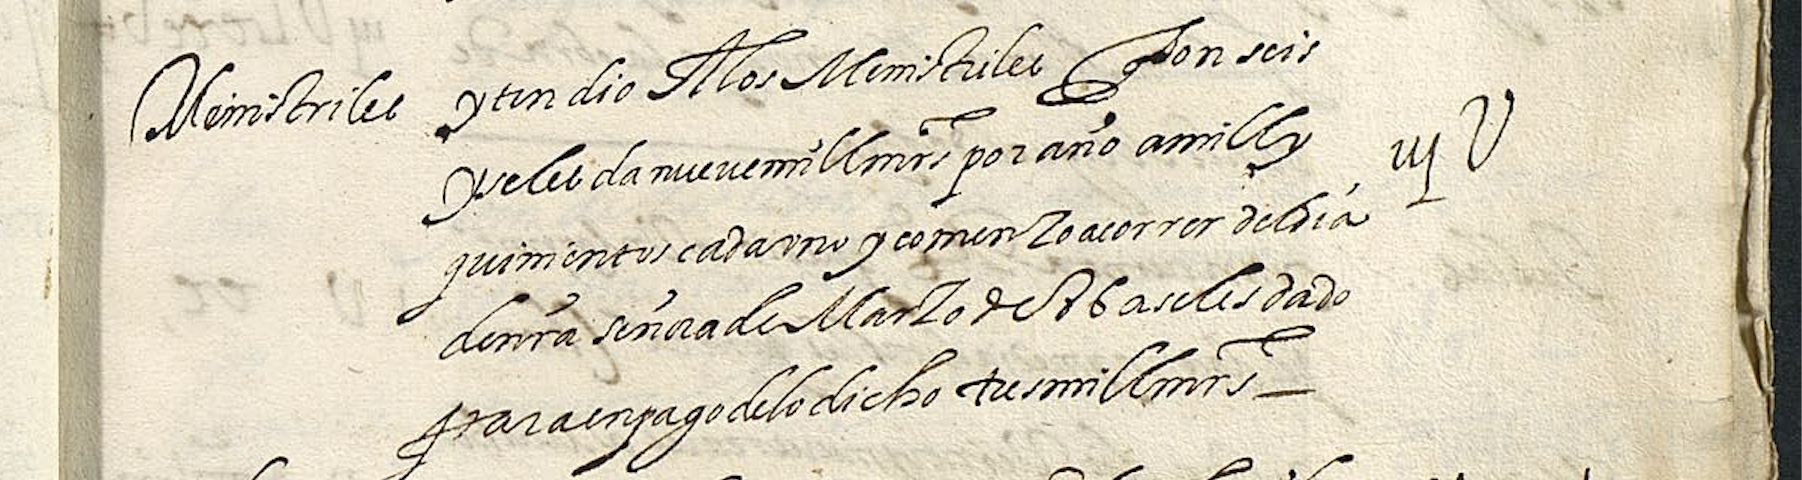 Menistriles
yten dio A los Menistriles q son seis
y seles da nueve mill mrs por año a mill y
quinientos cada uno y comenzo a correr del dia
de nra señora de Marzo de
para en pago de lo dicho tres mill mrs
iij U